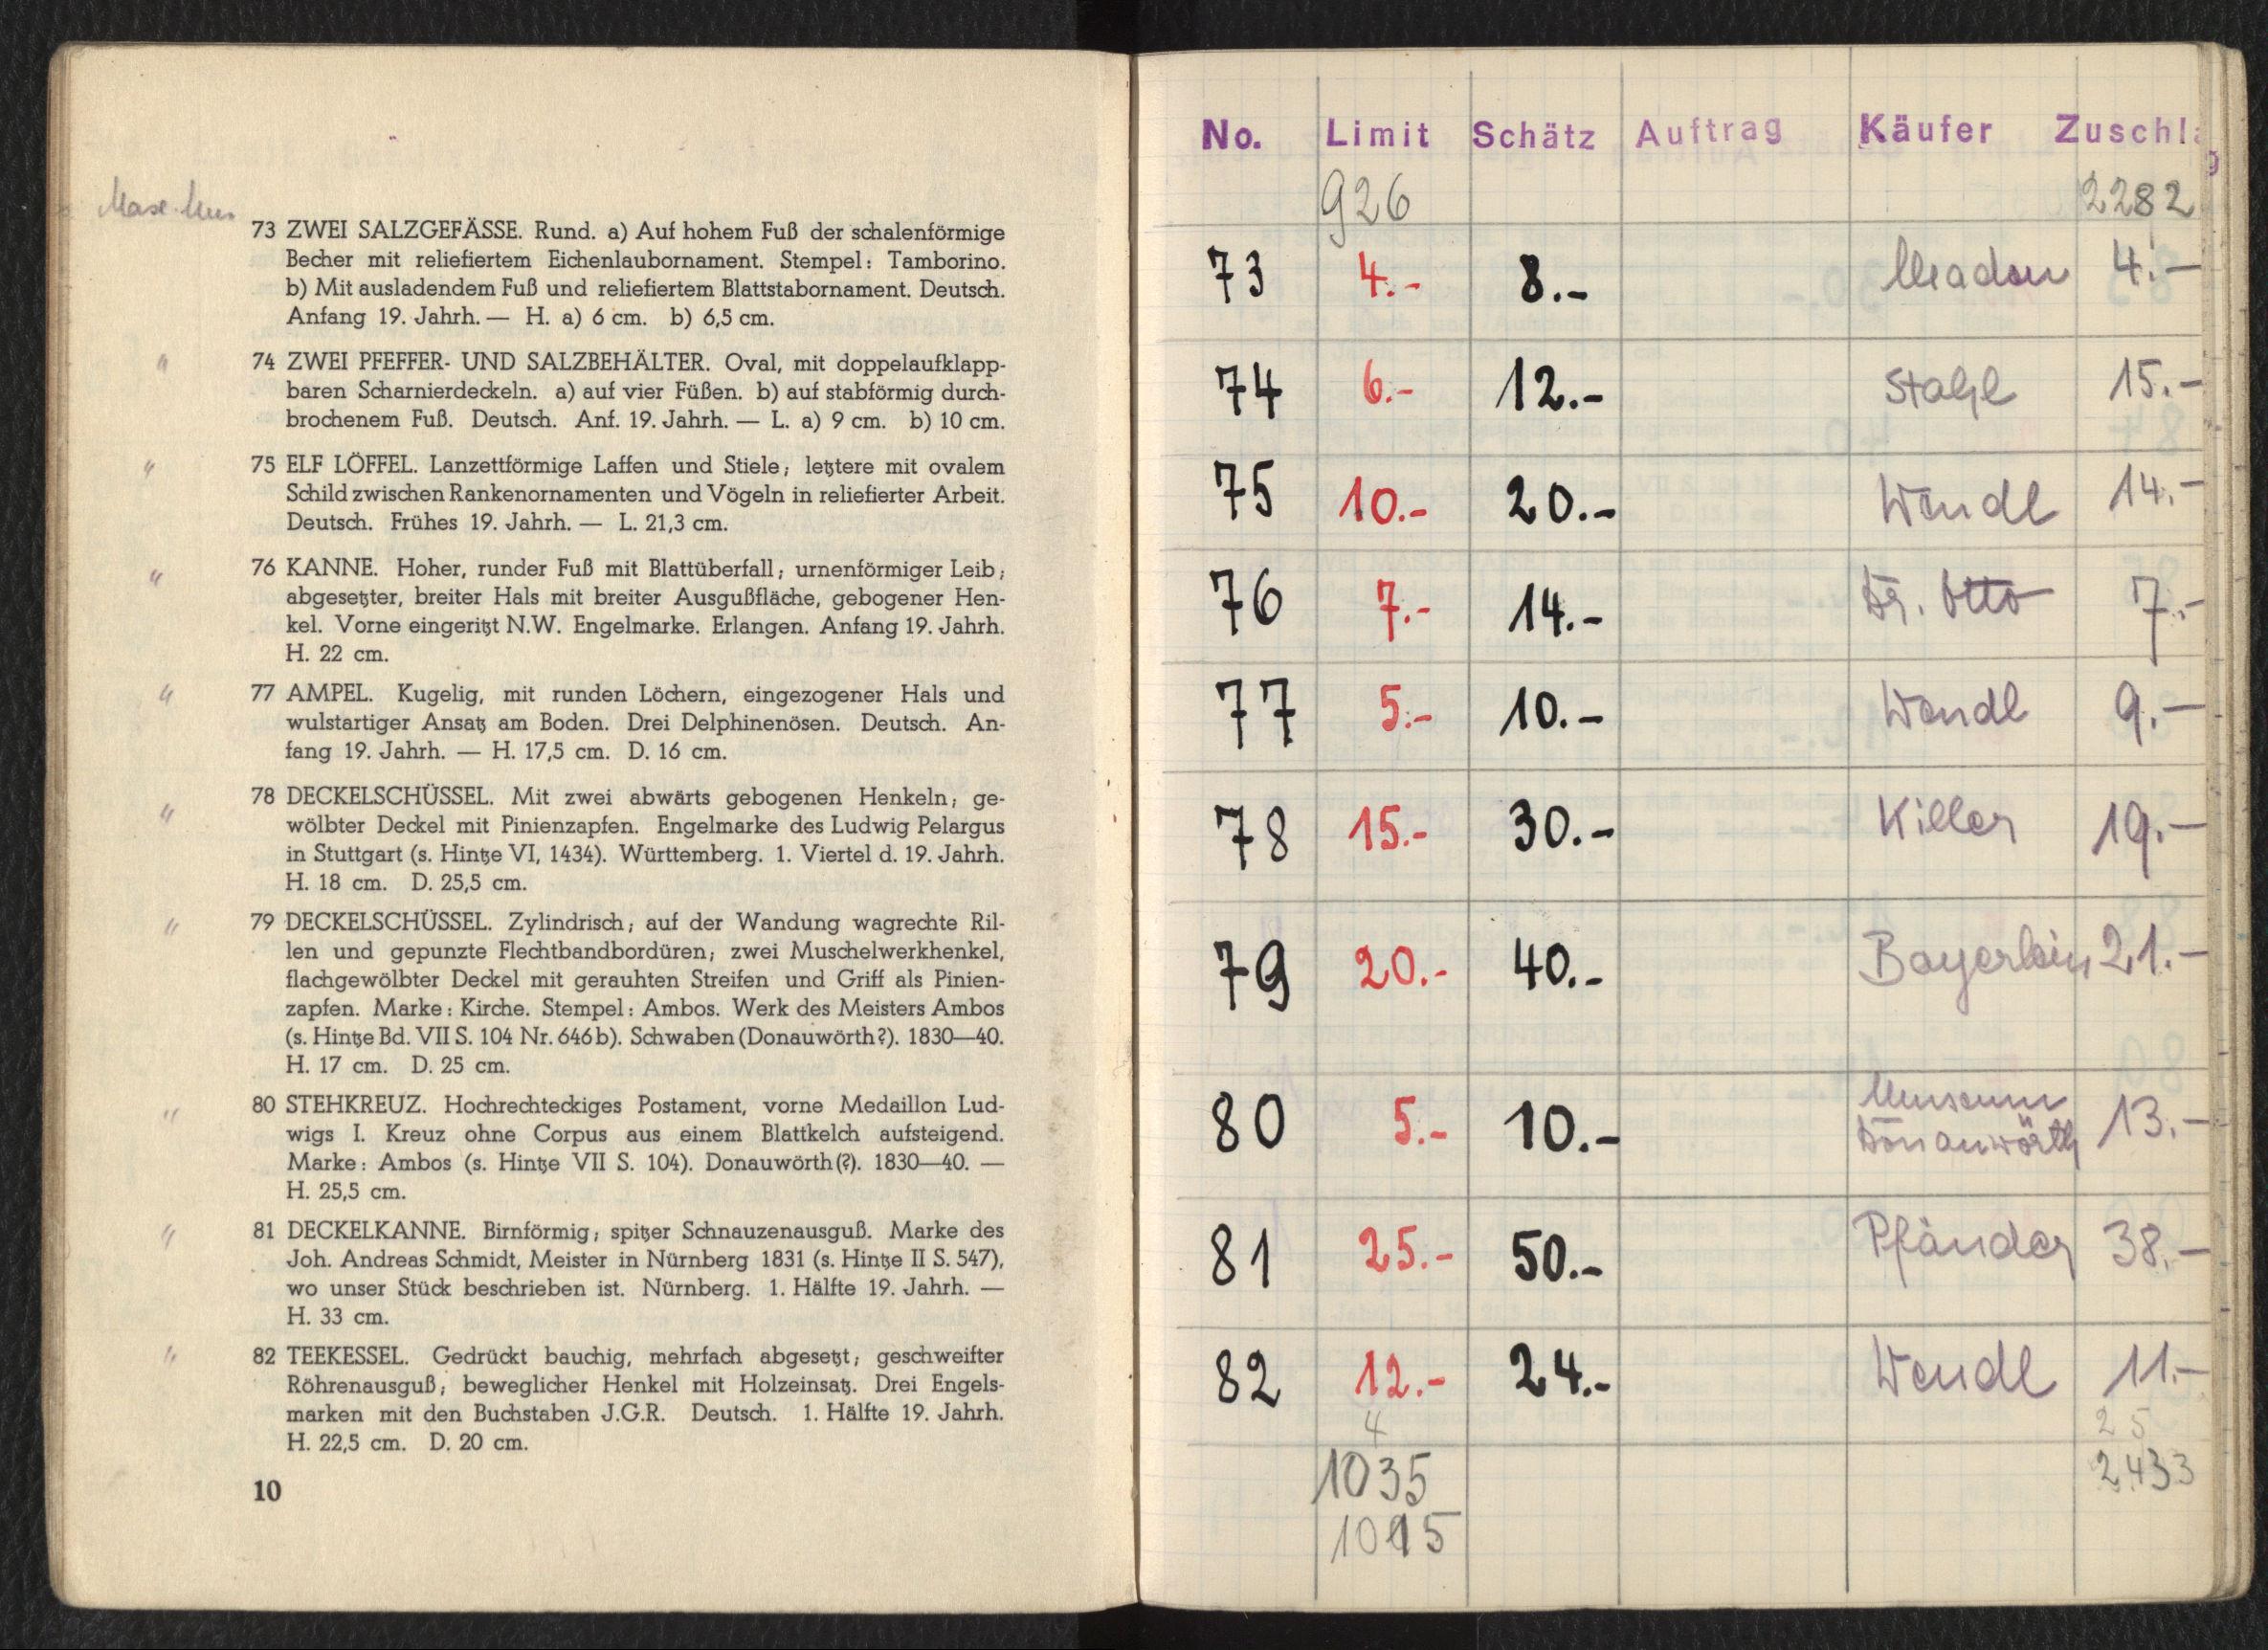 73 ZWEI SALZGEFÄSSE. Rund. a) Auf hohem Fuß der schalenförmige
Becher mit reliefiertem Eichenlaubornament. Stempel: Tamborino.
b) Mit ausladendem Fuß und reliefiertem Blattstabornament. Deutsch.
Anfang 19. Jahrh. — H. a) 6 cm. b) 6,5 cm.
" 74 ZWEI PFEFFER- UND SALZBEHÄLTER. Oval, mit doppelaufklapp-
baren Scharnierdeckeln. a) auf vier Füßen. b) auf stabförmig durch-
brochenem Fuß. Deutsch. Anf. 19. Jahrh. — L. a) 9 cm. b) 10 cm.
" 75 ELF LÖFFEL. Lanzettförmige Laffen und Stiele; letztere mit ovalem
Schild zwischen Rankenornamenten und Vögeln in reliefierter Arbeit.
Deutsch. Frühes 19. Jahrh. — L. 21,3 cm.
" 76 KANNE. Hoher, runder Fuß mit Blattüberfall; urnenförmiger Leib;
abgesetzter, breiter Hals mit breiter Ausgußfläche, gebogener Hen-
kel. Vorne eingeritzt N.W. Engelmarke. Erlangen. Anfang 19. Jahrh.
H. 22 cm.
" 77 AMPEL. Kugelig, mit runden Löchern, eingezogener Hals und
wulstartiger Ansatz am Boden. Drei Delphinenösen. Deutsch. An-
fang 19. Jahrh. — H. 17,5 cm. D. 16 cm.
" 78 DECKELSCHÜSSEL. Mit zwei abwärts gebogenen Henkeln; ge-
wölbter Deckel mit Pinienzapfen. Engelmarke des Ludwig Pelargus
in Stuttgart (s. Hintze VI, 1434). Württemberg. 1. Viertel d. 19. Jahrh.
H. 18 cm. D. 25,5 cm.
" 79 DECKELSCHÜSSEL. Zylindrisch; auf der Wandung wagrechte Ril-
len und gepunzte Flechtbandbordüren; zwei Muschelwerkhenkel,
flachgewölbter Deckel mit gerauhten Streifen und Griff als Pinien-
zapfen. Marke: Kirche. Stempel: Ambos. Werk des Meisters Ambos
(s. Hintze Bd. VII S. 104 Nr. 646b). Schwaben (Donauwörth?). 1830—40.
H. 17 cm. D. 25 cm.
" 80 STEHKREUZ. Hochrechteckiges Postament, vorne Medaillon Lud-
wigs I. Kreuz ohne Corpus aus einem Blattkelch aufsteigend.
Marke: Ambos (s. Hintze VII S. 104). Donauwörth(?). 1830—40. —
H. 25,5 cm.
" 81 DECKELKANNE. Birnförmig; spitzer Schnauzenausguß. Marke des
Joh. Andreas Schmidt, Meister in Nürnberg 1831 (s. Hintze II S. 547),
wo unser Stück beschrieben ist. Nürnberg. 1. Hälfte 19. Jahrh. —
H. 33 cm.
" 82 TEEKESSEL. Gedrückt bauchig, mehrfach abgesetzt; geschweifter
Röhrenausguß; beweglicher Henkel mit Holzeinsatz. Drei Engels-
marken mit den Buchstaben J.G.R. Deutsch. 1. Hälfte 19. Jahrh.
H. 22,5 cm. D. 20 cm.
10
No. Limit Schätz Auftrag Käufer Zuschlag
926 2282
73 4.- 8.- 4.-
74 6.- 12.- Stahl 15.-
75 10.- 20.- Wendl 14.-
76 7.- 14.- Dr. Otto 7.-
77 5.- 10.- Wendl 9.-
78 15.- 30.- Killer 19.-
79 20.- 40.- Bayerlein 21.-
80 5.- 10.- Museum Donauwörth 13.-
81 25.- 50.- Pfänder 38.-
82 12.- 24.- Wendl 11.-
4 25
1035 2433